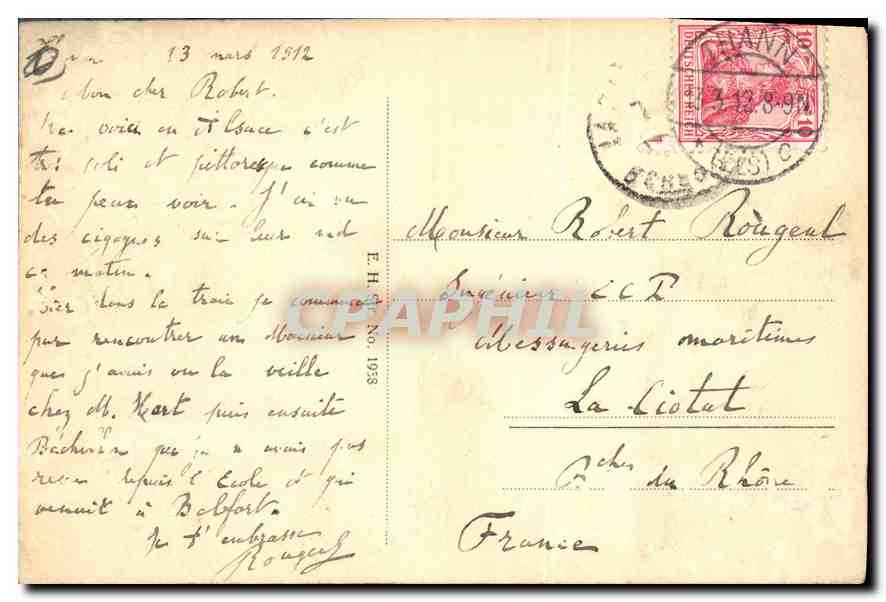 13 mars 1912
Mon cher Robert.
Me voici en Alsace c'est
très joli et pittoresque comme
tu peux voir. J'ai vu
des cigognes sur leur nid
ce matin.
Hier dans la train je commence
par rencontrer un Monsieur
que j'avais vu la veille
chez M. Hart puis ensuite
que je n avais pas
revu depuis l'Ecole et qui
venait à Belfort.
Je t'embrasse
Rougeul
E. H. Sr No. 1958
CPAPHIL
10 10
DEUTSCHES REICH
THANN
3.12.8-9N
(ELS) C
Monsieur Robert Rougeul
Ingénieur CCT
Messageries maritimes
La Ciotat
Bches du Rhône
France